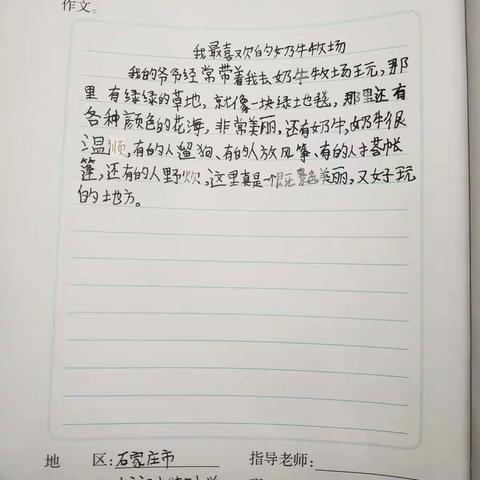 作文。
我最喜欢的奶牛牧场
我的爷爷经常带着我去奶牛牧场玩,那
里有绿绿的草地,就像一块绿土地毯,那里还有
各种颜色的花海,非常美丽,还有奶牛,奶牛很
温顺,有的人遛狗、有的人放风筝、有的人搭帐
篷,还有的人野炊,这里真是一个景色美丽,又好玩
的地方。
地 区:石家庄市 指导老师: